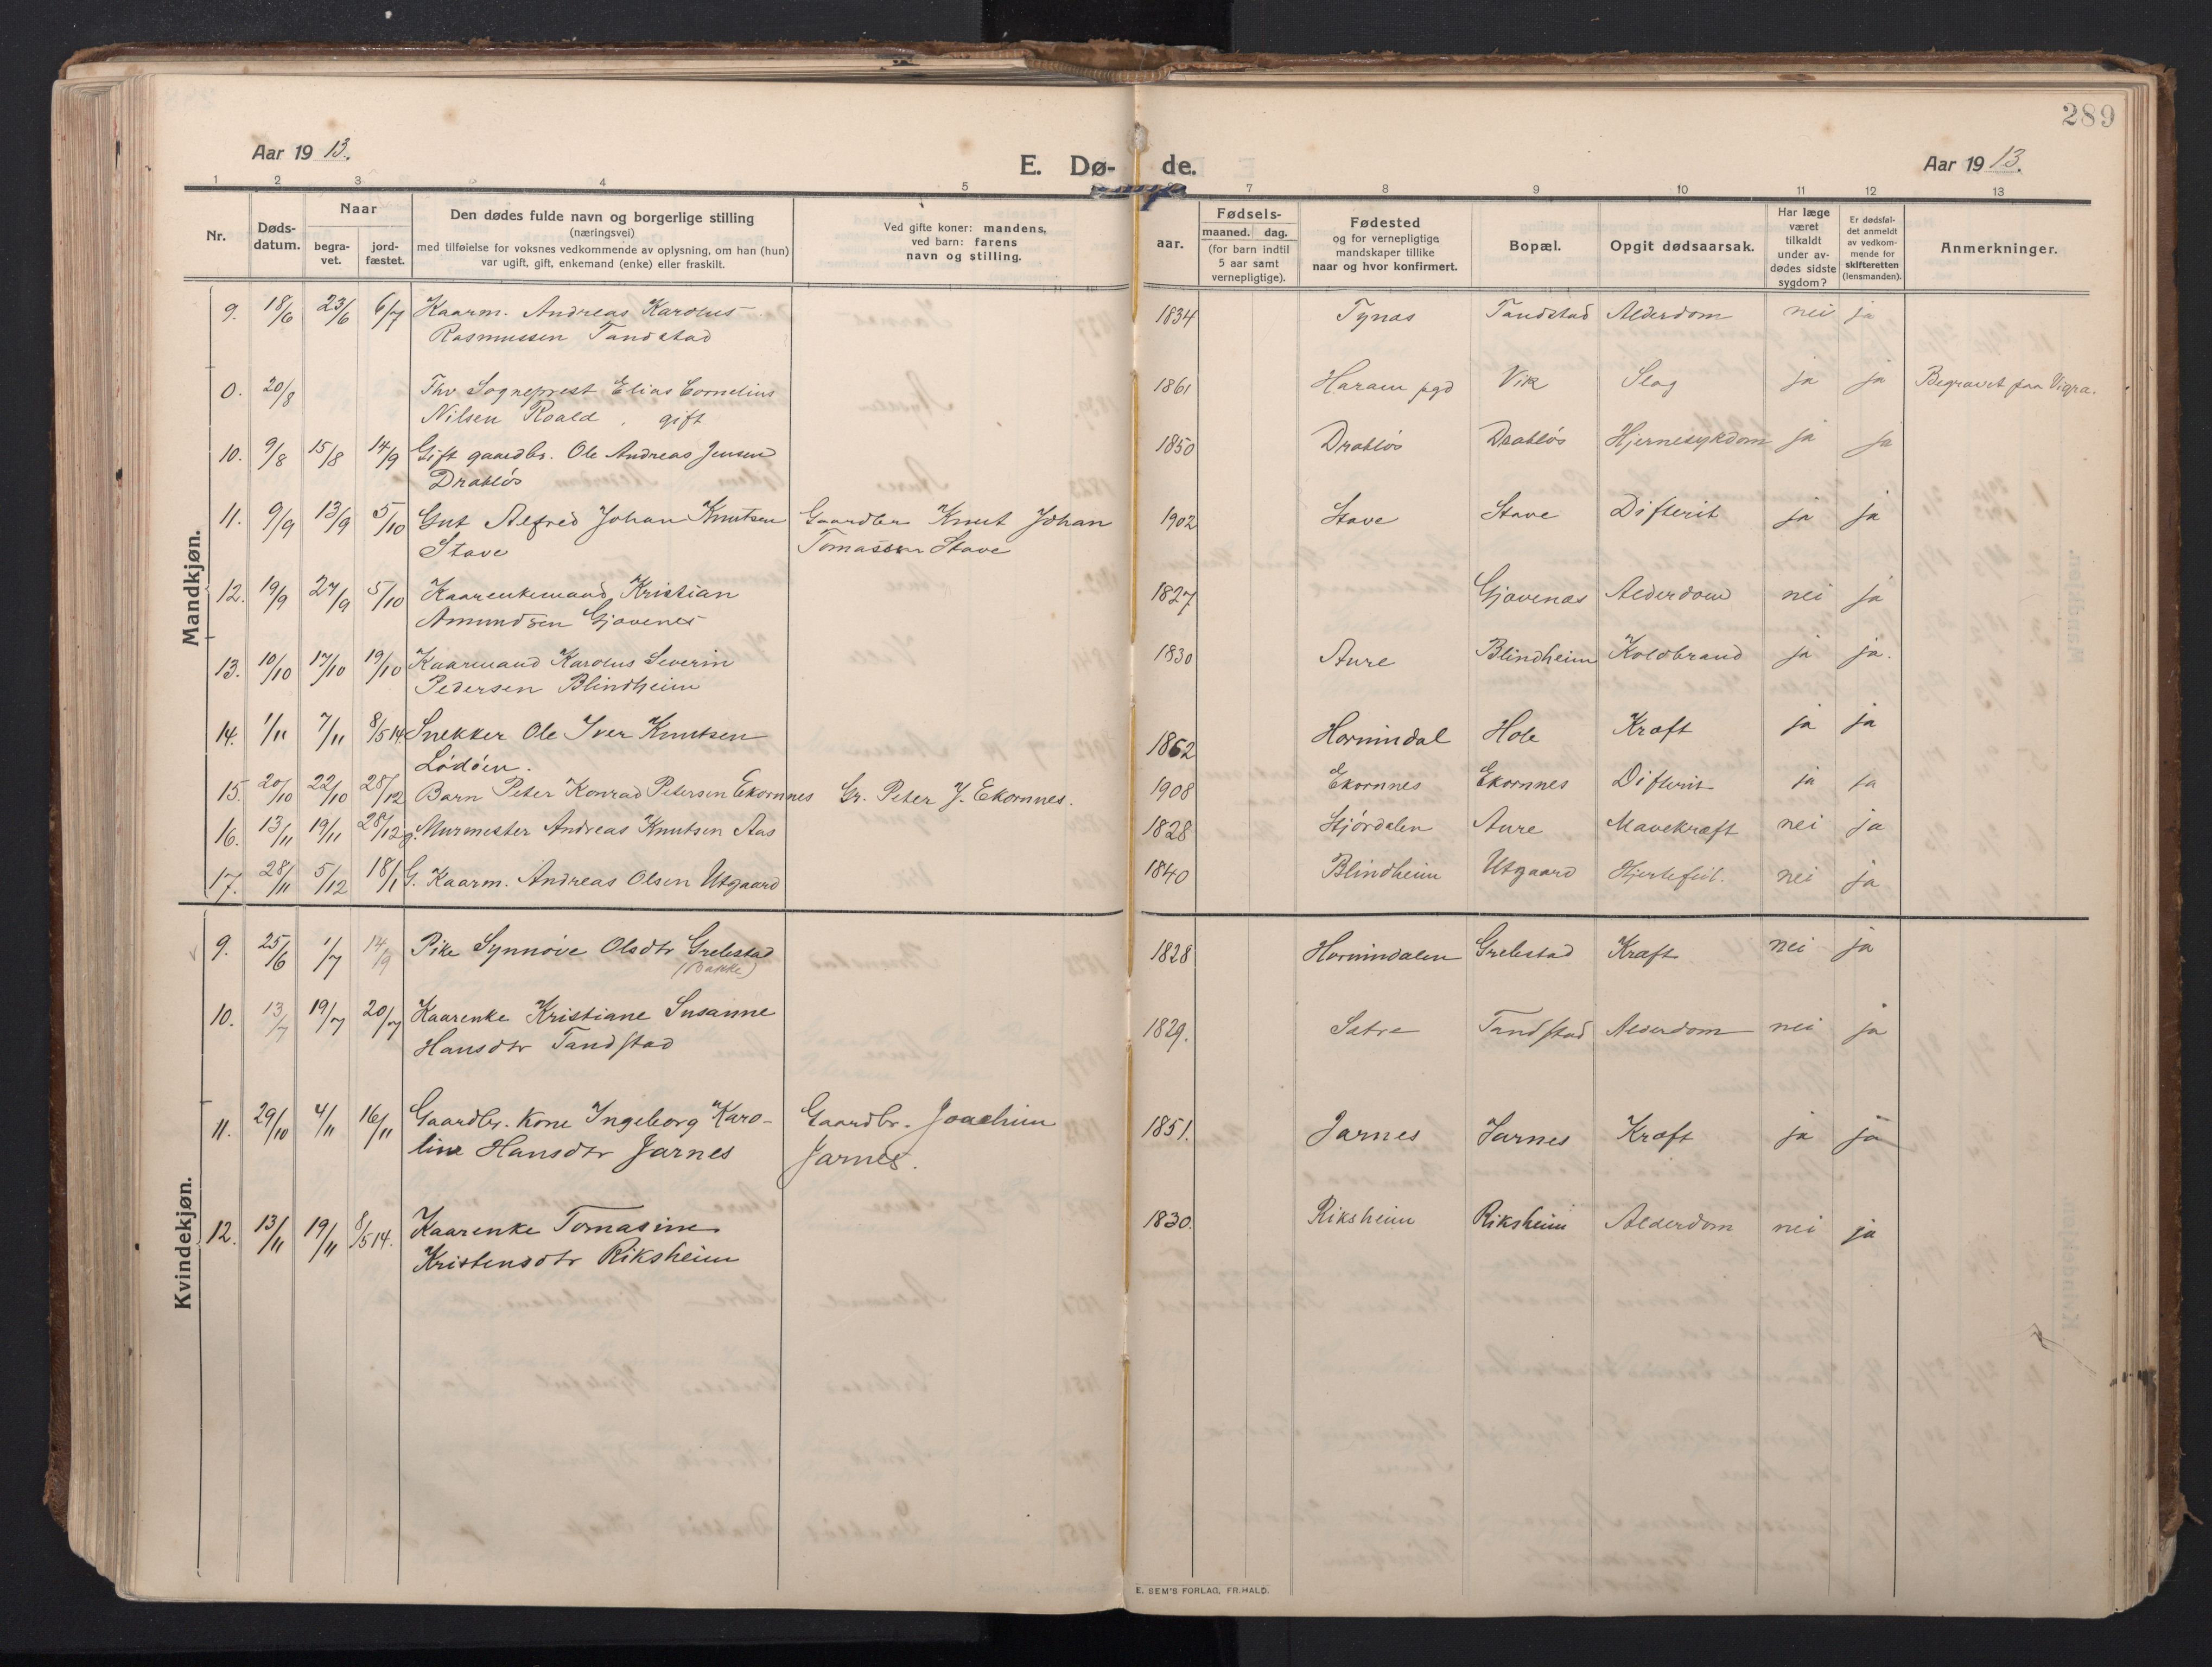 289
Aar 19 13.
E. Dø- de.
Aar 19 13.
1 2 3 4 5 7 8 9 10 11 12 13
Nr.
Døds-
datum.
Naar
begra-
vet.
jord-
fæstet.
Den dødes fulde navn og borgerlige stilling
(næringsvei)
med tilføielse for voksnes vedkommende av oplysning, om han (hun)
var ugift, gift, enkemand (enke) eller fraskilt.
Ved gifte koner: mandens,
ved barn: farens
navn og stilling.
Fødsels-
aar.
maaned. dag.
(for barn indtil
5 aar samt
vernepligtige).
Fødested
og for vernepligtige
mandskaper tillike
naar og hvor konfirmert.
Bopæl.
Opgit dødsaarsak.
Har læge
været
tilkaldt
under av-
dødes sidste
sygdom?
Er dødsfal-
det anmeldt
av vedkom-
mende for
skifteretten
(lensmanden).
Anmerkninger.
Mandkjøn.
9. 18/6 23/6 6/7 Kaarm. Andreas Karolus 1834 Tynes Tandstad Alderdom nei ja
Rasmussen Tandstad
0. 20/8 Thv Sogneprest Elias Cornelius 1861 Haram pgd Vik Slag ja ja Begravet paa Vigra.
Nilsen Roald, gift
10. 9/8 15/8 14/9 Gift gaardbr. Ole Andreas Jensen 1850 Drabløs Drabløs Hjernesykdom ja ja
Drabløs
11. 9/9 13/9 5/10 Gut Alfred Johan Knutsen Gaardbr Knut Johan 1902 Stave Stave Difterit ja ja
Stave Tomassen Stave
12. 19/9 27/9 5/10 Kaarenkemand Kristian 1827 Gjævenes Alderdom nei ja
Amundsen Gjævenes
13. 10/10 17/10 19/10 Kaarmand Karolus Severin 1830 Aure Blindheim Koldbrand ja ja.
Pedersen Blindheim
14. 1/11 7/11 8/5 14 Snekker Ole Iver Knutsen 1862 Hornindal Hole Kræft ja ja
Lødøen.
15. 20/10 22/10 28/12 Barn Peter Konrad Petersen Ekornnes Gr. Peter J. Ekornnes. 1908 Ekornnes Ekornnes Difterit ja ja
16. 13/11 19/11 28/12 g. Murmester Andreas Knutsen Aas 1828 Hjørdalen Aure Mavekræft nei ja
17. 28/11 5/12 18/1 G. Kaarm. Andreas Olsen Utgaard 1840 Blindheim Utgaard Hjertefeil. nei ja
Kvindekjøn.
9. 25/6 1/7 14/9 Pike Synnøve Olsdtr Grebestad 1828 Hornindalen Grebestad Kræft nei ja
(Bakke)
10. 13/7 19/7 20/7 Kaarenke Kristiane Susanne 1829. Satre Tandstad Alderdom nei ja
Hansdtr Tandstad
11. 29/10 4/11 16/11 Gaardbr. kone Ingeborg Karo- Gaardbr. Joachim 1851. Jarnes Jarnes Kræft ja ja
line Hansdtr Jarnes Jarnes.
12. 13/11 19/11 8/5 14. Kaarenke Tomasine 1830. Riksheim Riksheim Alderdom nei ja
Kristensdtr Riksheim
E. SEM'S FORLAG, FR.HALD.